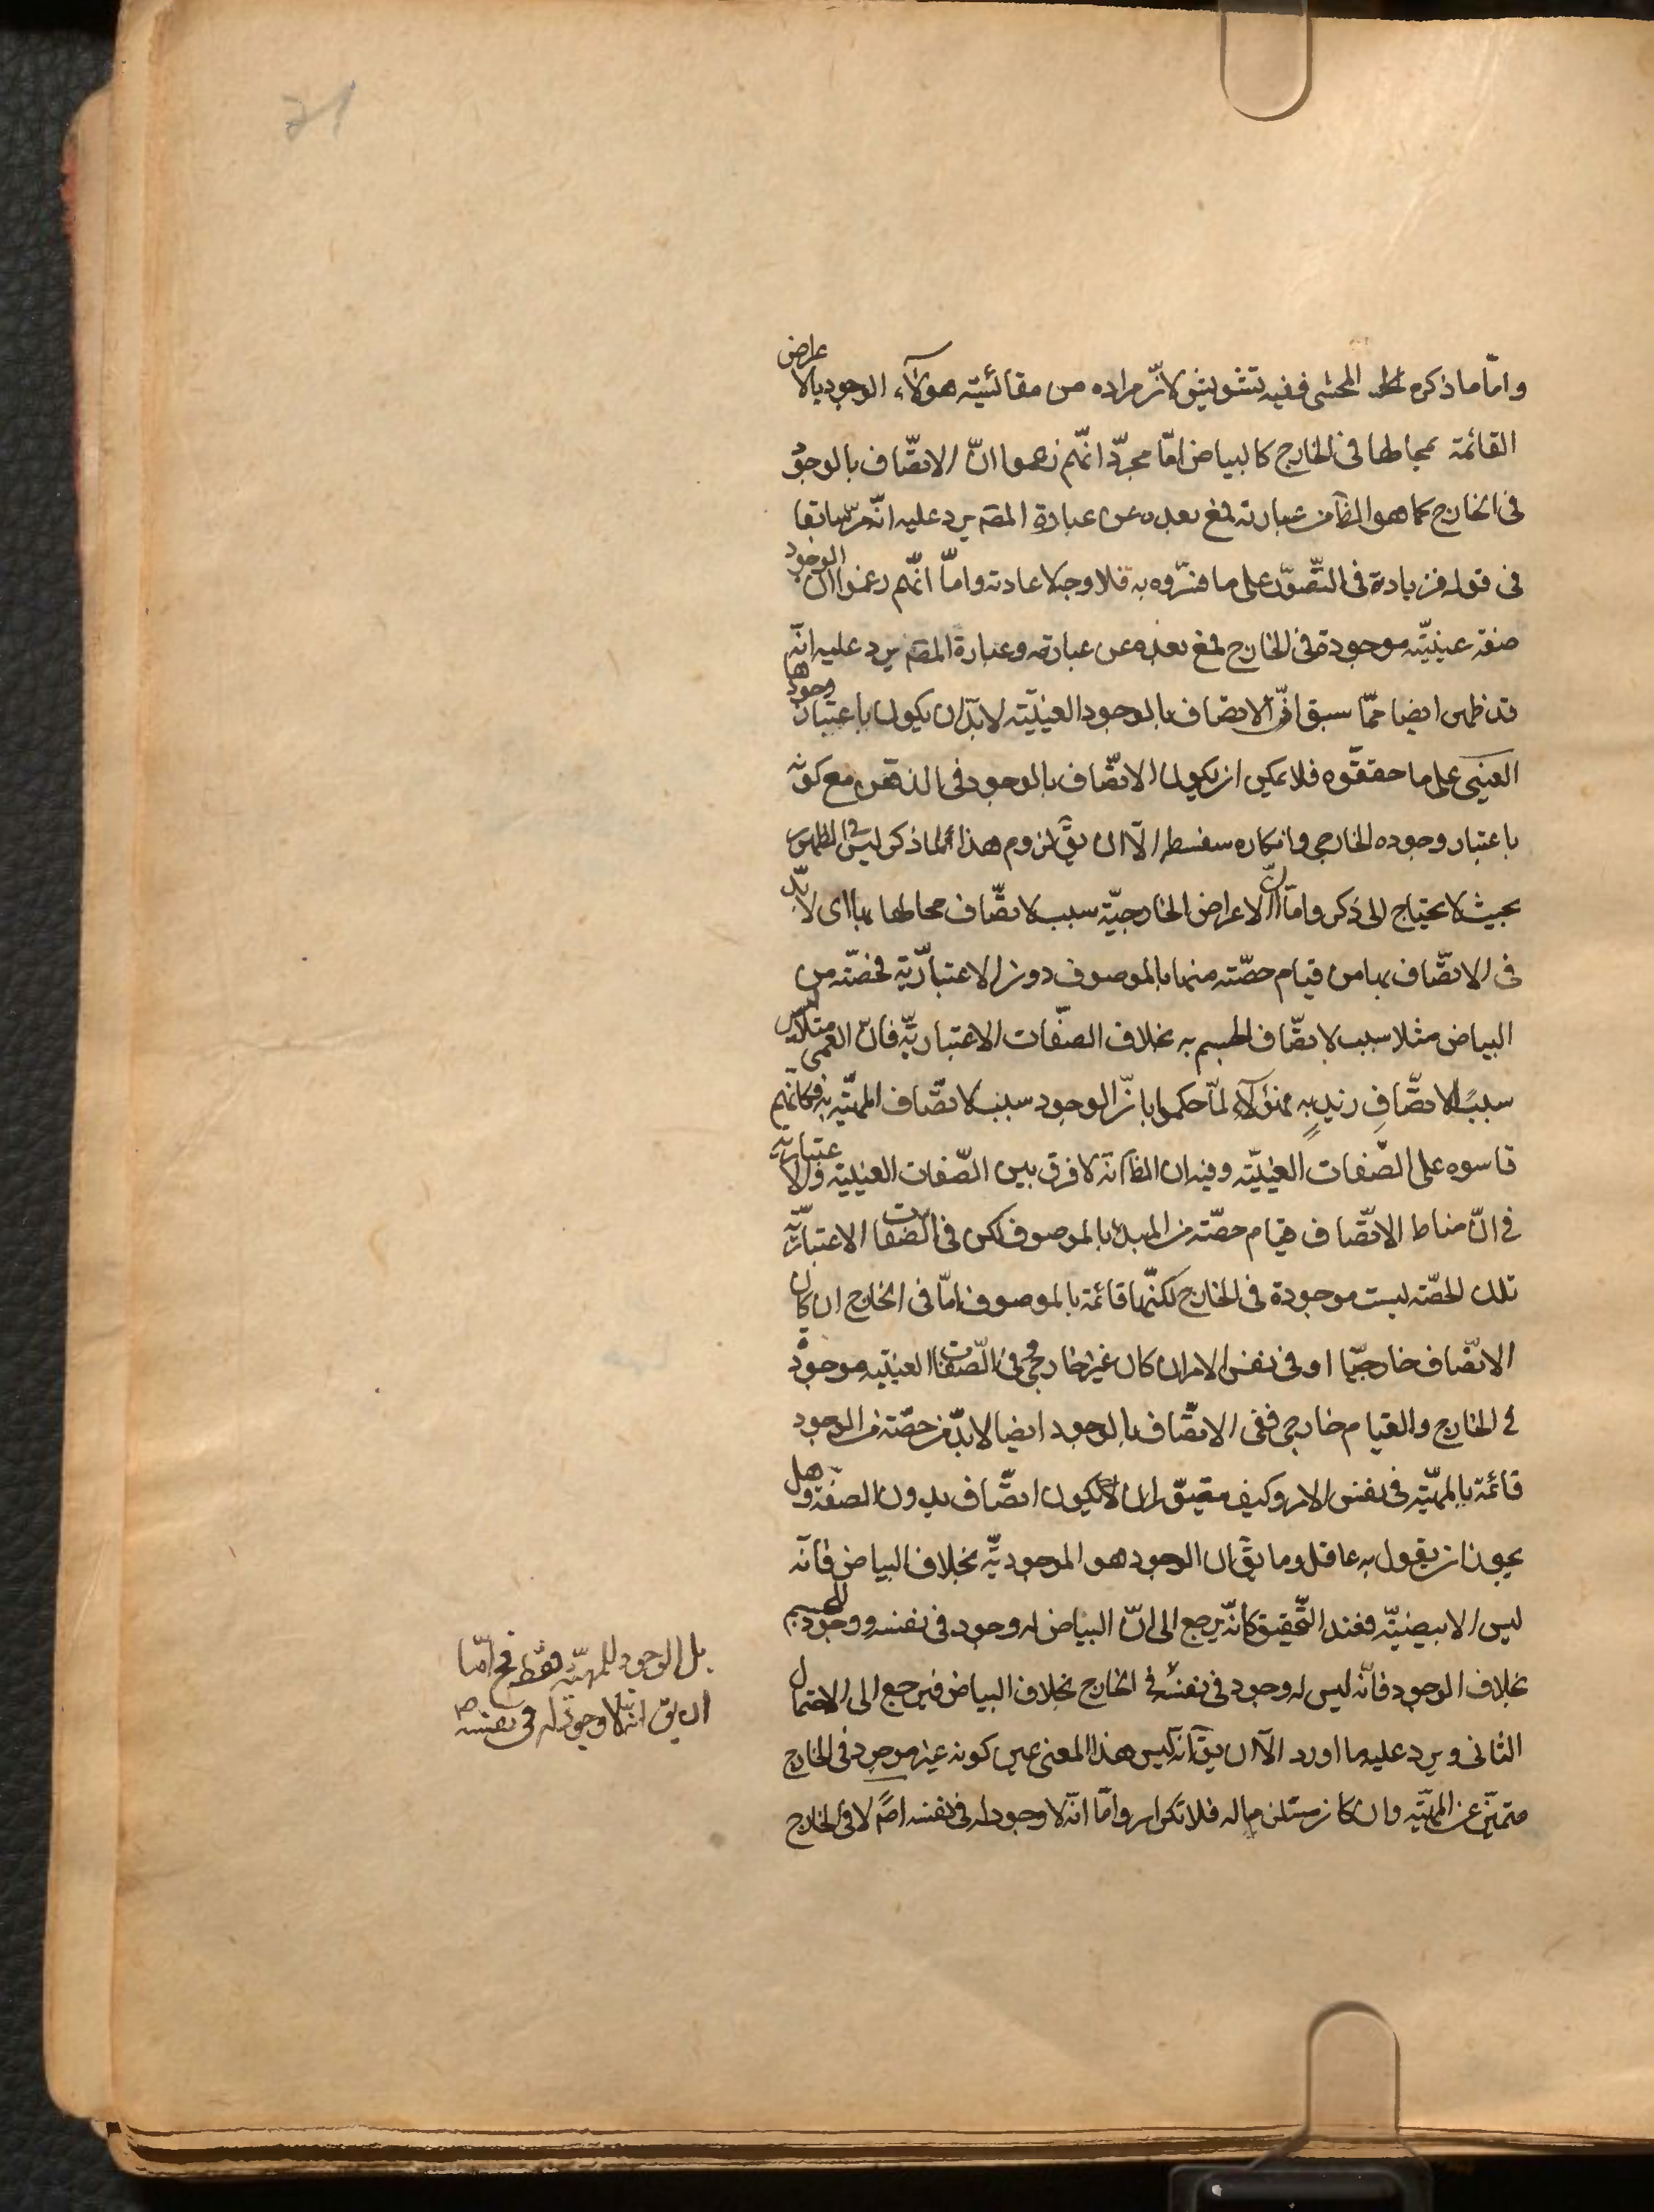 وامّا ما ذكره المحشى ففيه تشويش لانّ مراده من مقائسته هولاء الوجود بالاعراض
القائمة بمحالها فى الخارج كالبياض امّا مجرّد انّهم زعموا انّ الاتصّاف بالوجود
فى الخارج كما هو الظ من عبارته فمع بعده عن عبارة المصّ يرد عليه انّه مرّ سابقا
فى قوله فزيادته فى التصّور على ما فسّروه به فلا وجه لاعادته وامّا انّهم زعموا ان الوجود
صفة عينيّة موجودة فى الخارج فمع بعده عن عبارته وعبارة المصّ يرد عليه انّه
قد ظهر ايضا ممّا سبق انّ الاتصاف بالوجود العينيّة لابدّ ان يكون باعتبار وجودها
العينى على ما حققوه فلا يمكن ان يكون الاتصّاف بالوجود فى الذهن مع كونه
باعتبار وجوده الخارجى وانكاره سفسطه الّا ان يقّ لزوم هذا لما ذكر ليس فى الظهور
بحيث لا يحتاج الى ذكر وامّا انّ الاعراض الخارجيّة سبب لاتصّاف محالها بها اى لابدّ
فى الاتصّاف بها من قيام حصّته منها بالموصوف دون الاعتباريّة فحصّته من
البياض مثلا سبب لاتصّاف الجسم به بخلاف الصفات الاعتباريّة فان العمى مثلا ليس
سببًا لاتصّافِ زيدٍ بهِ فهؤلاء لمّا حكموا بانّ الوجود سبب لاتصّاف المهيّة به فكانهم
قاسوه على الصّفات العينيّة وفيه ان الظ انّه لا فرق بين الصّفات العينية والاعتبارية
فى انّ مناط الاتصّاف قيام حصّته من المبدء بالموصوف لكن فى الصّفات الاعتباريّة
تلك الحصّته ليست موجودة فى الخارج لكنّها قائمة بالموصوف امّا فى الخارج ان كان
الاتصّاف خارجيّا او فى نفس الامر ان كان غير خارجى وفى الصّفات العينيّه موجودة
فى الخارج والقيام خارجى ففى الاتصّاف بالوجود ايضا لابدّ من حصّته من الوجود
قائمة بالمهيّة فى نفس الامر وكيف يتصّور ان يكون اتصّاف بدون الصفة وهل
يجوز ان يقول به عاقل وما يقّ ان الوجود هو الموجوديّة بخلاف البياض فانّه
ليس الابيضيّة فعند التّحقيق كانّه يرجع الى انّ البياض له وجود فى نفسه ووجود للجسم
بخلاف الوجود فانّه ليس له وجود فى نفسه فى الخارج بخلاف البياض فيرجع الى الاحتمال
الثانى ويرد عليه ما اورد الّا ان يقّ انّه ليس هذا المعنى عين كونه غير موجود فى الخارج
متميّز عن المهيّة وان كان مستلزما له فلا تكرار وامّا انّه لا وجود له فى نفسه اصًّ لا فى الخارج
بل الوجود للمهيّة فقط فح امّا
ان يق انّه لا وجود له فى نفسه